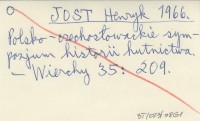 JOST Henryk 1966.
Polsko-czechosłowackie sym-
pozjum historii hutnictwa.
– Wierchy 35: 209.